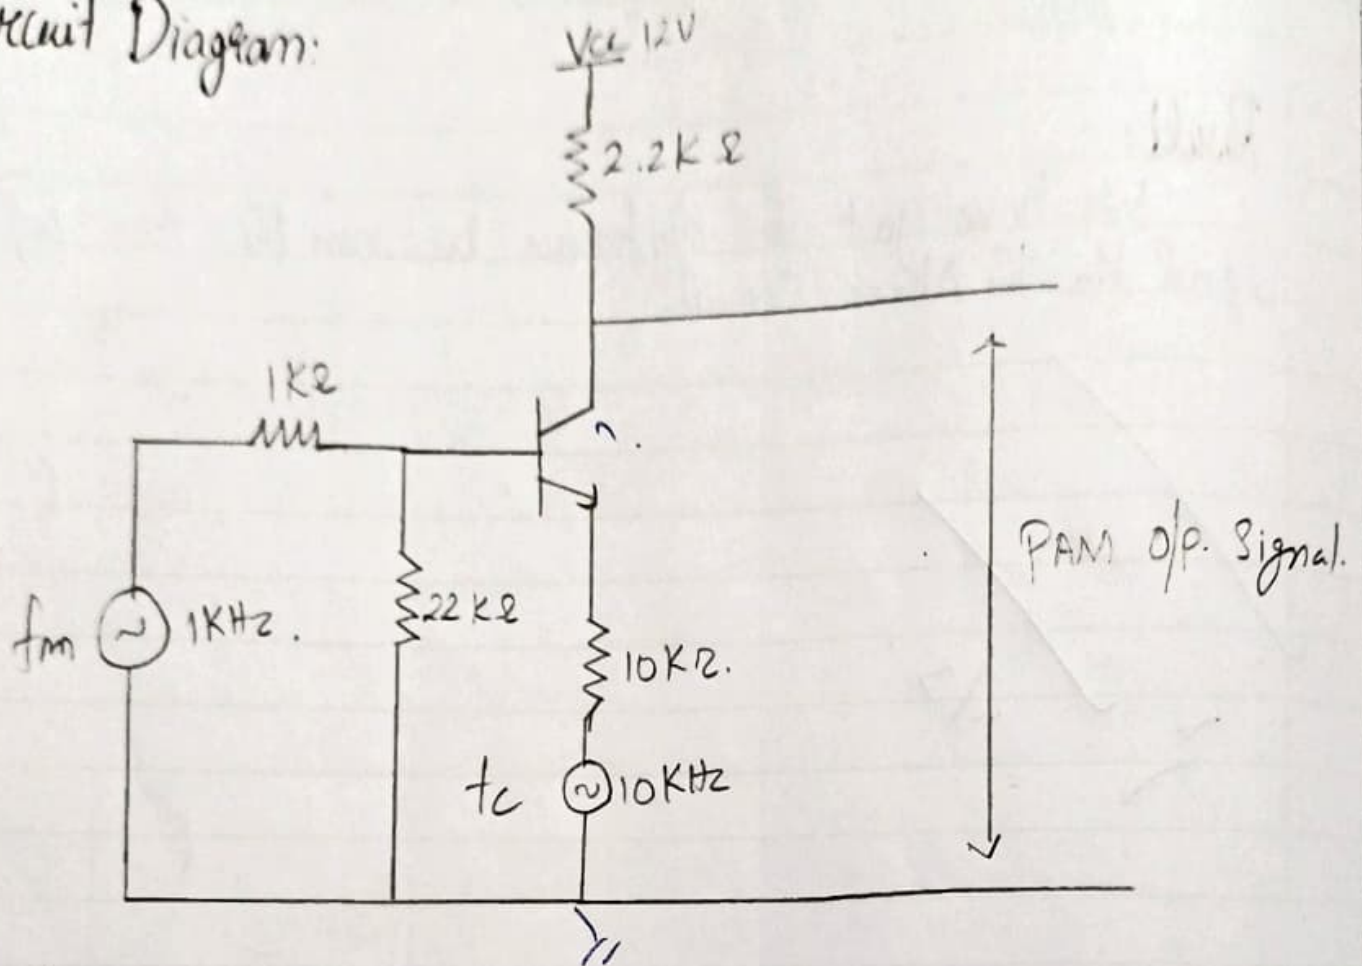 rcuit Diagram:
Vcc 12V
2.2KΩ
1KΩ
fm 1KHz.
22KΩ
10KΩ.
fc 10KHz
PAM O/P. Signal.